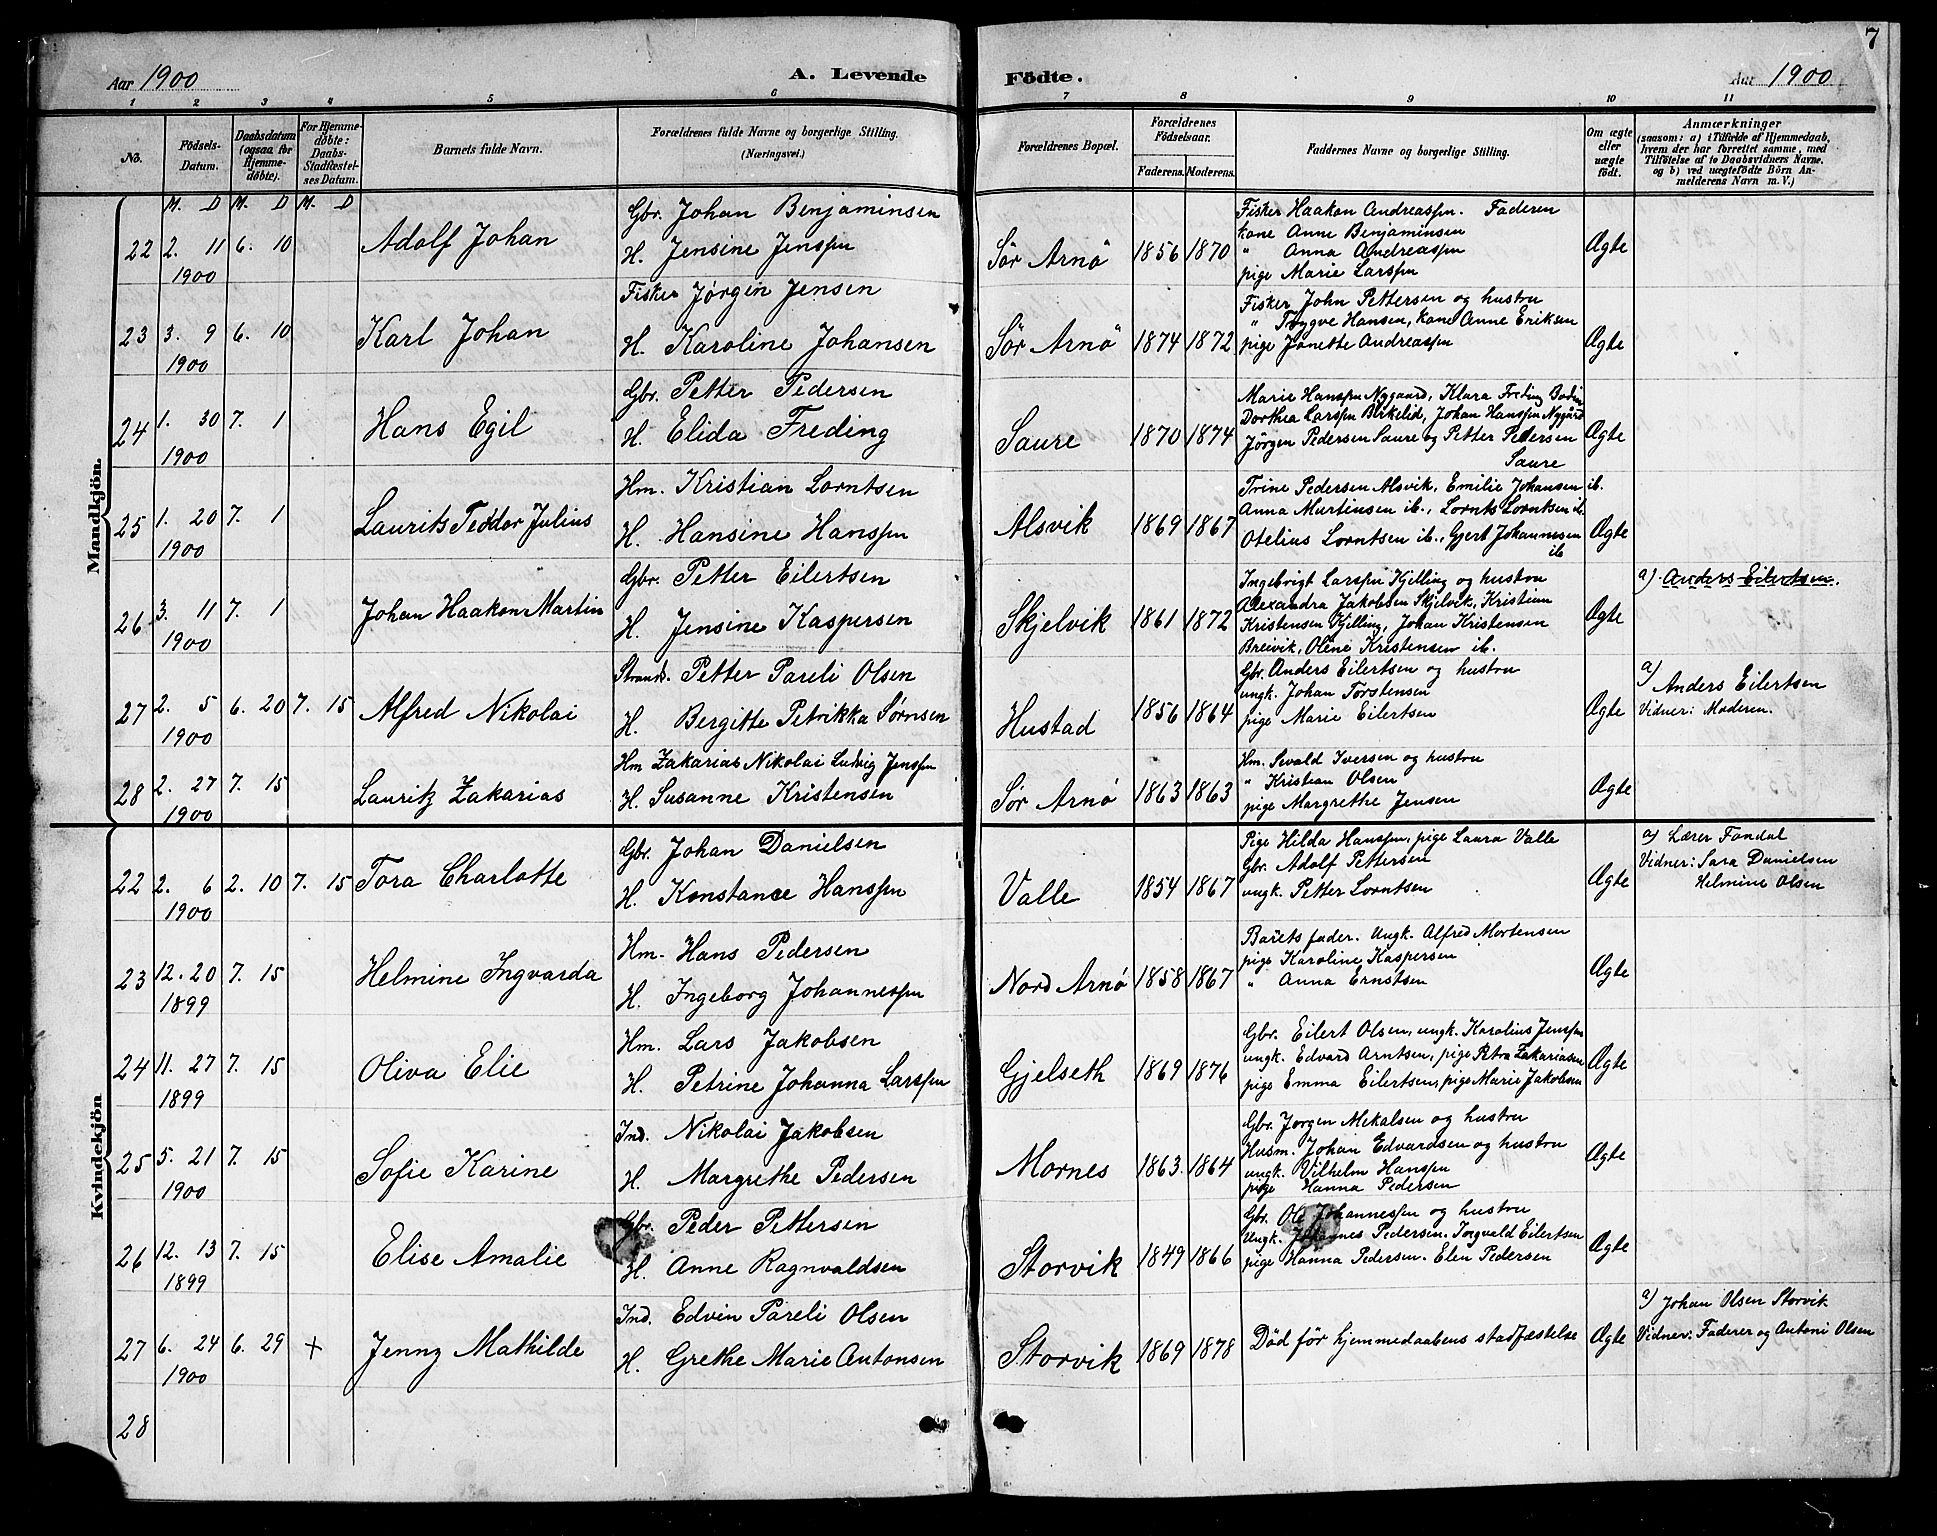 7
Aar 1900 A. Levende Födte. Aar 1900
1 2 3 4 5 6 7 8 9 10 11
No.
Födsels-Datum.
Daabsdatum (ogsaa for Hjemmedöbte).
For Hjemmedöbte: Daabs-Stadfæstelses Datum.
Barnets fulde Navn.
Forældrenes fulde Navne og borgerlige Stilling.
(Næringsvei.)
Forældrenes Bopæl.
Forældrenes Födselsaar.
Faderens. Moderens.
Faddernes Navne og borgerlige Stilling.
Om ægte eller uægte födt.
Anmærkninger
(saasom: a) i Tilfælde af Hjemmedaab,
hvem der har forrettet samme, med
Tilföielse af to Daabsvidners Navne,
og b) ved uægtefödte Börn Anmelderens Navn m. V.)
M. D M. D M. D
Mandkjön.
22 2. 11 1900 6. 10 Adolf Johan
Gbr. Johan Benjaminsen
H. Jensine Jenssen
Sör Arnö 1856 1870
Fisker Haakon Andreassen. Faderen
kone Anne Benjaminsen
" Anna Andreassen
pige Marie Larssen
Ægte
23 3. 9 1900 6. 10 Karl Johan
Fisker Jörgen Jensen
H. Karoline Johansen
Sör Arnö 1874 1872
Fisker John Pettersen og hustru
" Trygve Hansen, kone Anne Eriksen
pige Janette Andreassen
Ægte
24 1. 30 1900 7. 1 Hans Egil
Gbr. Petter Pedersen
H. Elida Freding
Saure 1870 1874
Marie Hanssen Nygaard, Klara Freding Bodin
Dorthea Larssen Birkelid, Johan Hanssen Nygård
Jörgen Pedersen Saure og Petter Pedersen
Saure
Ægte
25 1. 20 1900 7. 1 Laurits Teodor Julius
Hm. Kristian Lorntsen
H. Hansine Hanssen
Alsvik 1869 1867
Trine Pedersen Alsvik, Emilie Johansen ib.
Anna Martinsen ib., Lornts Lorntsen ib.
Otelius Lorntsen ib., Gjert Johannesen
ib
Ægte
26 3. 11 1900 7. 1 Johan Haakon Martin
Gbr. Petter Eilertsen
H. Jensine Kaspersen
Skjelvik 1861 1872
Ingebrigt Larssen Kjelling og hustru
Alexandra Jakobsen Skjelvik, Kristian
Kristensen Kjelling, Johan Kristensen
Breivik, Oline Kristensen ib.
Ægte
a) Anders Eilertsen.
27 2. 5 1900 6. 20 7. 15 Alfred Nikolai
Strands. Petter Pareli Olsen
H. Bergitte Petrikka Sørnsen
Hustad 1856 1864
Gbr. Anders Eilertsen og hustru
ungk. Johan Torstensen
pige Marie Eilertsen
Ægte
a) Anders Eilertsen
Vidner: Moderen.
28 2. 27 1900 7. 15 Lauritz Zakarias
Hm Zakarias Nikolai Ludvig Jenssen
H. Susanne Kristensen
Sör Arnö 1863 1863
Hm. Sevald Iversen og hustru
" Kristian Olsen
pige Margrethe Jensen
Ægte
Kvindekjön
22 2. 6 1900 2. 10 7. 15 Tora Charlotte
Gbr. Johan Danielsen
H. Konstance Hanssen
Valle 1854 1867
Pige Hilda Hanssen, pige Laura Valle
Gbr. Adolf Pettersen
ungk. Petter Lorntsen
Ægte
a) Lærer Fondal
Vidner: Sara Danielsen
Helmine Olsen
23 12. 20 1899 7. 15 Helmine Ingvarda
Hm. Hans Pedersen
H. Ingeborg Johannessen
Nord Arnö 1858 1867
Barets fader. Ungk. Alfred Mortensen
pige Karoline Kaspersen
" Anna Ernstsen
Ægte
24 11. 27 1899 7. 15 Oliva Elie
Hm. Lars Jakobsen
H. Petrine Johanna Larssen
Gjelseth 1869 1876
Gbr. Eilert Olsen, ungk. Karolius Jenssen
ungk. Edvard Arntsen, pige Petra Zakariasen
pige Emma Eilertsen, pige Marie Jakobsen
Ægte
25 5. 21 1900 7. 15 Sofie Karine
Ind. Nikolai Jakobsen
H. Margrethe Pedersen
Mornes 1863. 1864
Gbr. Jorgen Mekalsen og hustru
Husm. Johan Edvardsen og hustru
ungk. Vilhelm Hanssen
pige Hanna Pedersen
Ægte
26 12. 13 1899 7. 15 Elise Amalie
Gbr. Peder Pettersen
H. Anne Ragnvaldsen
Storvik 1849 1866
Gbr. Ole Johannessen og hustru
Ungk. Johannes Pedersen. Torgvald Eilertsen
pige Hanna Pedersen. Elen Pedersen
Ægte
27 6. 24 1900 6. 29 + Jenny Mathilde
Ind. Edvin Pareli Olsen
H. Grethe Marie Antonsen
Storvik 1869 1878
Död för hjemmedaabens stadfæstelse
Ægte
a) Johan Olsen Storvik
Vidner: Faderer og Antoni Olsen
28